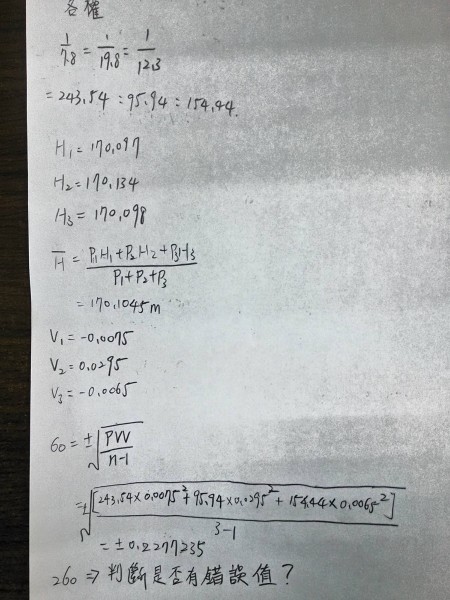 各權
1/7.8 = 1/19.8 = 1/12.3
= 243.54 : 95.94 : 154.44.
H₁ = 170.097
H₂ = 170.134
H₃ = 170.098
H̅ = P₁H₁+P₂H₂+P₃H₃ / P₁+P₂+P₃
= 170.1045m
V₁ = -0.0075
V₂ = 0.0295
V₃ = -0.0065
60 = ±√PVV / n-1
= ±√[243.54×0.0075²+95.94×0.0295²+154.44×0.0065²] / 3-1
= ±0.2277235
260 ⇒ 判斷是否有錯誤值?